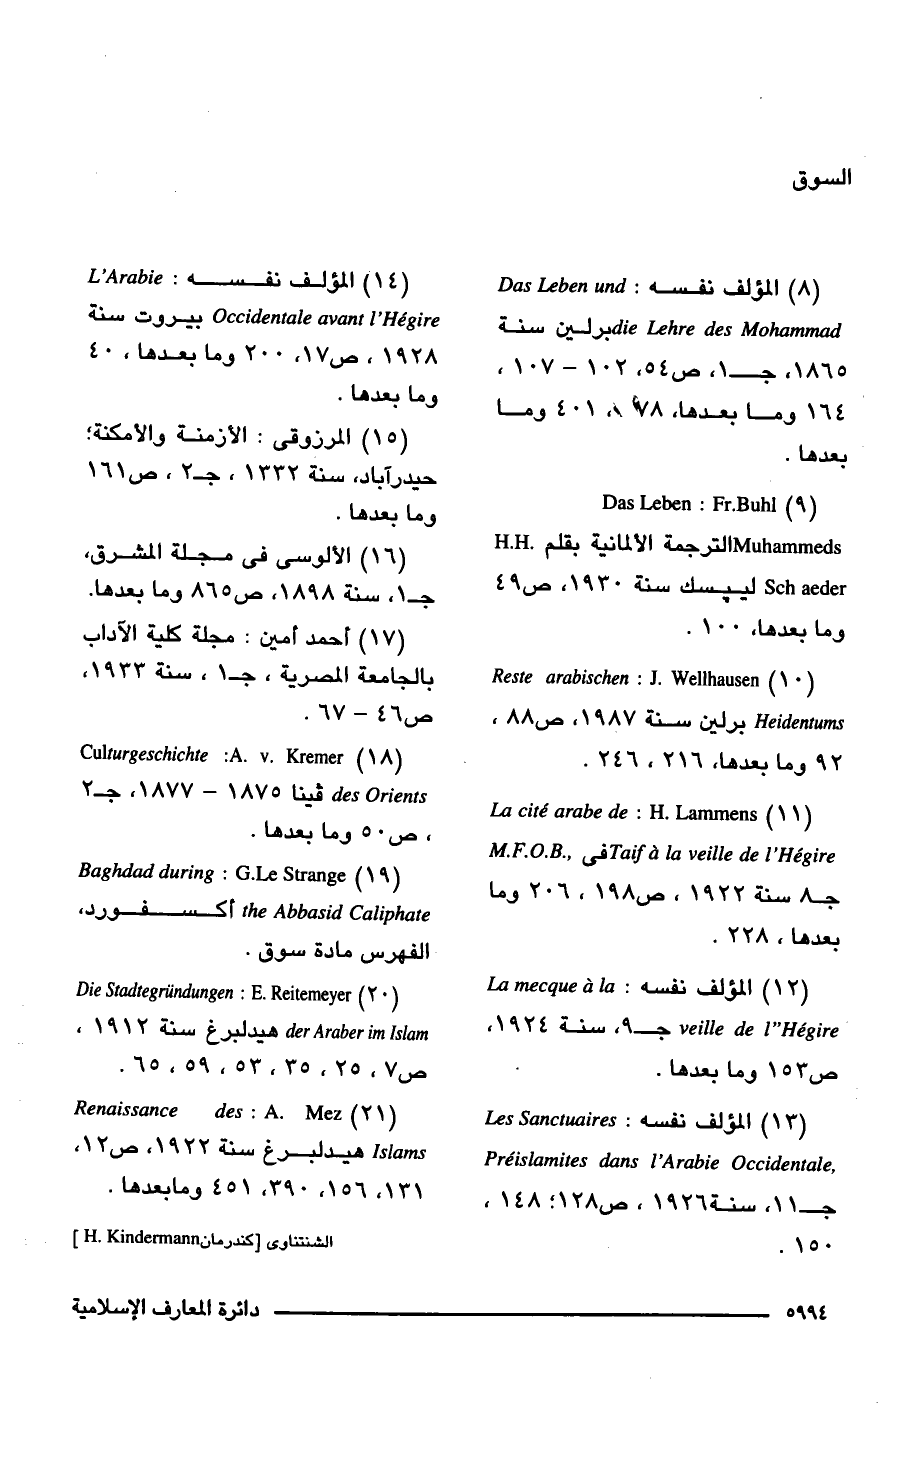 السوق
(٨) المؤلف نفسه : Das Leben und
die Lehre des Mohammad برلين سنة
١٨٦٥، جـ١، ص٥٤، ١٠٢ – ١٠٧ ،
١٦٤ وما بعدها، ٧٨ ، ٤٠١ وما
بعدها .
(٩) Das Leben : Fr.Buhl
Muhammeds الترجمة الالمانية بقلم H.H.
Sch aeder ليپسك سنة ١٩٣٠، ص٤٩
وما بعدها، ١٠٠ .
(١٠) Reste arabischen : J. Wellhausen
Heidentums برلين سنة ١٩٨٧، ص٨٨ ،
٩٢ وما بعدها، ٢١٦ ، ٢٤٦ .
(١١) La cité arabe de : H. Lammens
Taif à la veille de l'Hégire فى M.F.O.B.,
جـ٨ سنة ١٩٢٢ ، ص١٩٨ ، ٢٠٦ وما
بعدها ، ٢٢٨ .
(١٢) المؤلف نفسه : La mecque à la
veille de l''Hégire جـ٩، سنة ١٩٢٤،
ص١٥٣ وما بعدها .
(١٣) المؤلف نفسه : Les Sanctuaires
Préislamites dans l'Arabie Occidentale,
جـ١١، سنة١٩٢٦ ، ص١٢٨؛ ١٤٨ ،
١٥٠ .
(١٤) المؤلف نفسه : L'Arabie
Occidentale avant l'Hégire بيروت سنة
١٩٢٨ ، ص١٧، ٢٠٠ وما بعدها ، ٤٠
وما بعدها .
(١٥) المرزوقى : الأزمنة والامكنة؛
حيدرآباد، سنة ١٣٣٢ ، جـ٢ ، ص١٦١
وما بعدها .
(١٦) الألوسى فى مجلة المشرق،
جـ١، سنة ١٨٩٨، ص٨٦٥ وما بعدها.
(١٧) أحمد أمين : مجلة كلية الآداب
بالجامعة المصرية ، جـ١ ، سنة ١٩٣٣،
ص٤٦ – ٦٧ .
(١٨) Culturgeschichte :A. v. Kremer
des Orients ڤينا ١٨٧٥ – ١٨٧٧، جـ٢
، ص٥٠ وما بعدها .
(١٩) Baghdad during : G.Le Strange
the Abbasid Caliphate أكسفورد،
الفهرس مادة سوق .
(٢٠) Die Stadtegründungen : E. Reitemeyer
der Araber im Islam هيدلبرغ سنة ١٩١٢ ،
ص٧ ، ٢٥ ، ٣٥ ، ٥٣ ، ٥٩ ، ٦٥ .
(٢١) Renaissance des : A. Mez
Islams هيدلبرغ سنة ١٩٢٢، ص١٢،
١٣١، ١٥٦، ٣٩٠، ٤٥١ ومابعدها .
الشنتناوى [كندرمان H. Kindermann ]
٥٩٩٤ دائرة المعارف الإسلامية